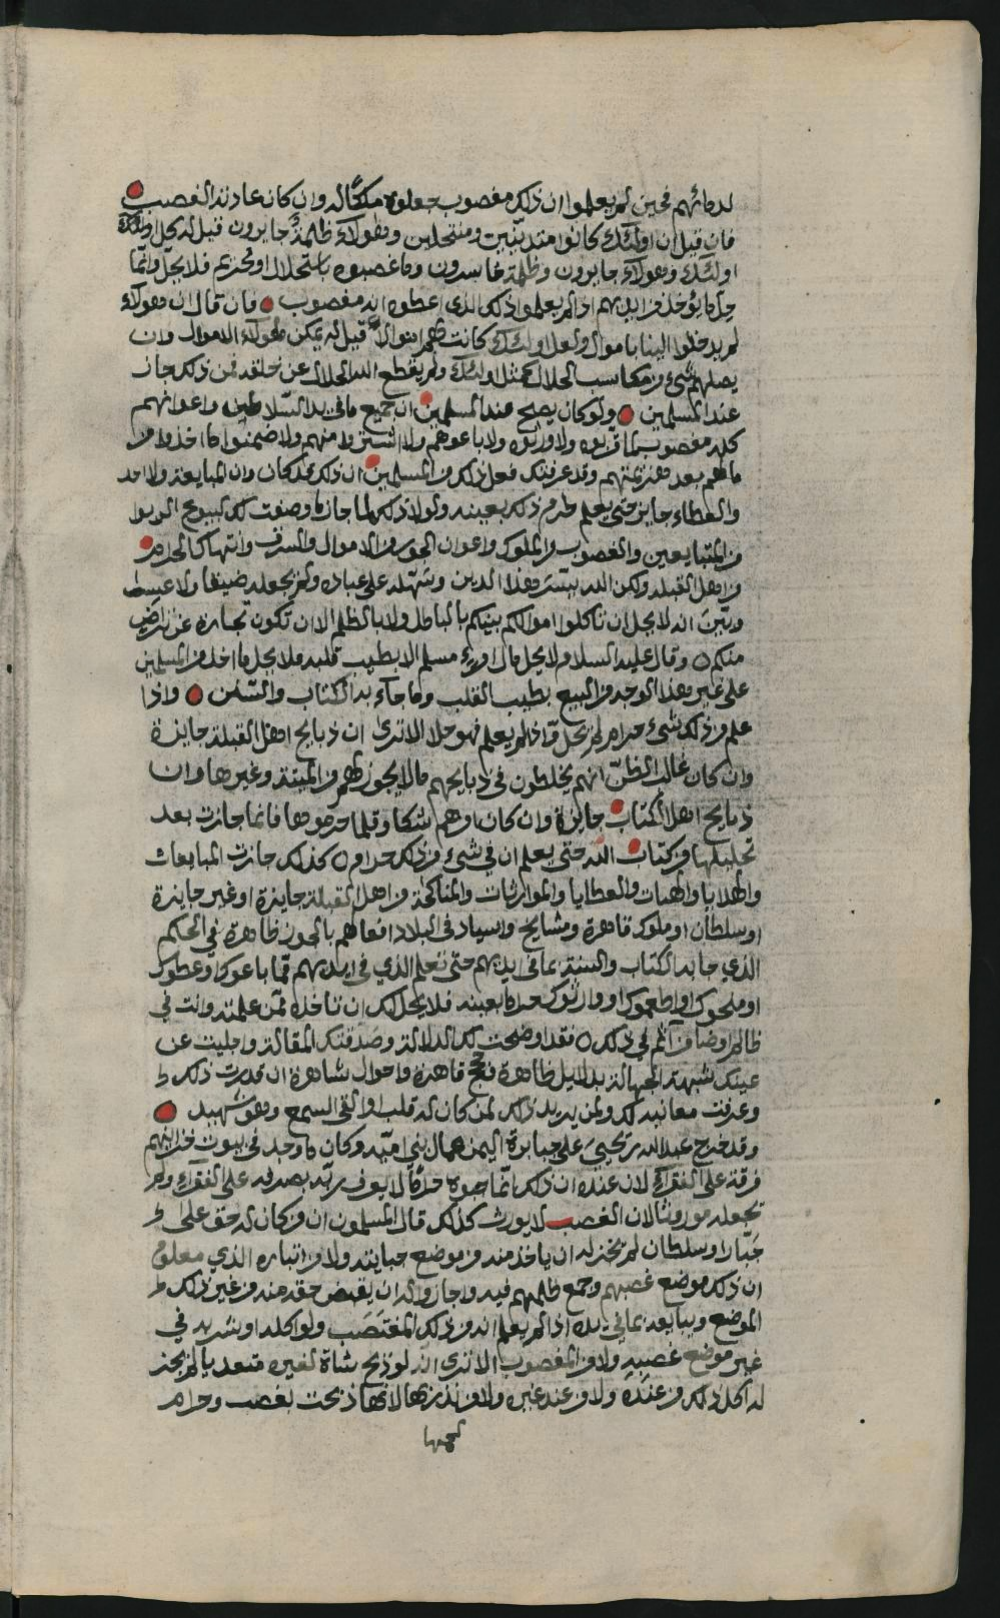 لدمائهم فحين لم يعلموا ان ذلك مغصوب جعلوه ملكا له وان كان عادته الغصب
فان قيل ان اولئك كانوا متدينين ومنتحلين وهولاء ظلمة جايرون قيل له كل
اولئك وهولاء جايرون وظلمة غاسدون وما غصبوه باستحلال او تحريم فلا يحل وانما
حل ما يوخذ من ايديهم اذ الم يعلموا ذلك الذى اعطوه انه مغصوب فان قال ان هولاء
لم يدخلوا الينا باموال ولعل اولئك كانت لهم اموال قيل له يمكن لهولاء الاموال وان
يصلهم شيء من مكاسب الحلال كمثل اولئك ولم يقطع الله الحلال عن خلقه فمن ذلك جاز
عند المسلمين ولو كان يصح عند المسلمين ان جميع ما في يد السلاطين واعوانهم
كله مغصوب لما قربوه ولا ورثوه ولا باعوهم ولا اشتروا منهم ولا ضمنوا ما اخذوا من
مالهم بعد هزيمتهم وقد عرفتك فعل ذلك من المسلمين ان ذلك قد كان وان المبايعة ولا اخذ
والعطاء جايز حتى يعلم حرام ذلك بعينه ولولا ذلك لما جاز ما وصفت لك لبيوع الربوا
من المتبايعين والغصوب من الملوك واعوان الجور من الاموال والسرف وانتهاك الحرام
من اهل القبلة ولكن الله يسر هذا الدين وسهله على عباده ولم يجعله ضيقا ولا عسيرا
وبين انه لا يحل ان تاكلوا اموالكم بينكم بالباطل ولا بالظلم الا ان تكون تجارة عن تراض
منكم وقال عليه السلام ولا يحل مال امرىء مسلم الا بطيب قلبه فلا يحل ما اخذ من المسلمين
على غير هذا الوجه من البيع بطيب القلب وما جاء به الكتاب والسنن واذا
علم من ذلك شيء حرام لم يحل واذا لم يعلم فهو حلال الا ترى ان ذبايح اهل القبلة جايزة
وان كان غالب الظن انهم يخلطون في ذبايحهم ما لا يجوز لهم من الميتة وغيرها وان
ذبايح اهل الكتاب جايزة وان كان وهم شكا وقلما حرموها فانما جازت بعد
تحليلها من كتاب الله حتى يعلم ان في شيء من ذلك حرام كذلك جازت المبايعات
والهدايا والهبات والعطايا والموارثات والمناكحة من اهل القبلة جايزة او غير جايزة
او سلطان او ملوك قاهرة ومشايخ واسياد في البلاد افعالهم بالجور ظاهرة في الحكم
الذي جا به الكتاب والسنة بما في ايديهم حتى تعلم الذي في ايديهم مما باعوك او عطوك
او منحوك او اطعموك او وارثوك حراما بعينه فلا يحل لك ان تاخذه ممن علمته وانت في
ظالم وضامن آثم في ذلك فقد اوضحت لك الدلالة وصدقتك المقالة واجليت عن
عينك شبهة الجهالة بدلايل ظاهرة وحجج قاهرة واحوال شاهرة ان تدبرت ذلك
وعرفت معانيه لك ولمن يريد ذلك لمن كان له قلب او القى السمع وهو شهيد
وقد خرج عبد الله بن يحيى على جبابرة اليمن عمال بني امية وكان ما وجد في بيوت خزاينهم
فرقه على الفقراء لان عنده ان ذلك انما جبوه حراما لا يعرف ربه يصدق به على الفقراء ولم
يجعله موروثا لان الغصب لا يورث كذلك قال المسلمون ان من كان له حق على
جبار او سلطان لم يجز له ان ياخذ منه من موضع جبايته ولا من انباره الذي معلوم
ان ذلك موضع غصبهم وجمع ظلمهم فيه واجازوا له ان يقبض حقه منه من غير ذلك
الموضع ويبايعه بما في يده اذا لم يعلم انه من ذلك المغتصب ولو اكله او شربه في
غير موضع غصبه ولا من المغصوب الا ترى انه لو ذبح شاة لغيره متعديا لم يجز
له اكل ذلك من عنده ولا من عند غيره ولا من نذر بها لانها ذبحت بغصب وحرام
لحمها